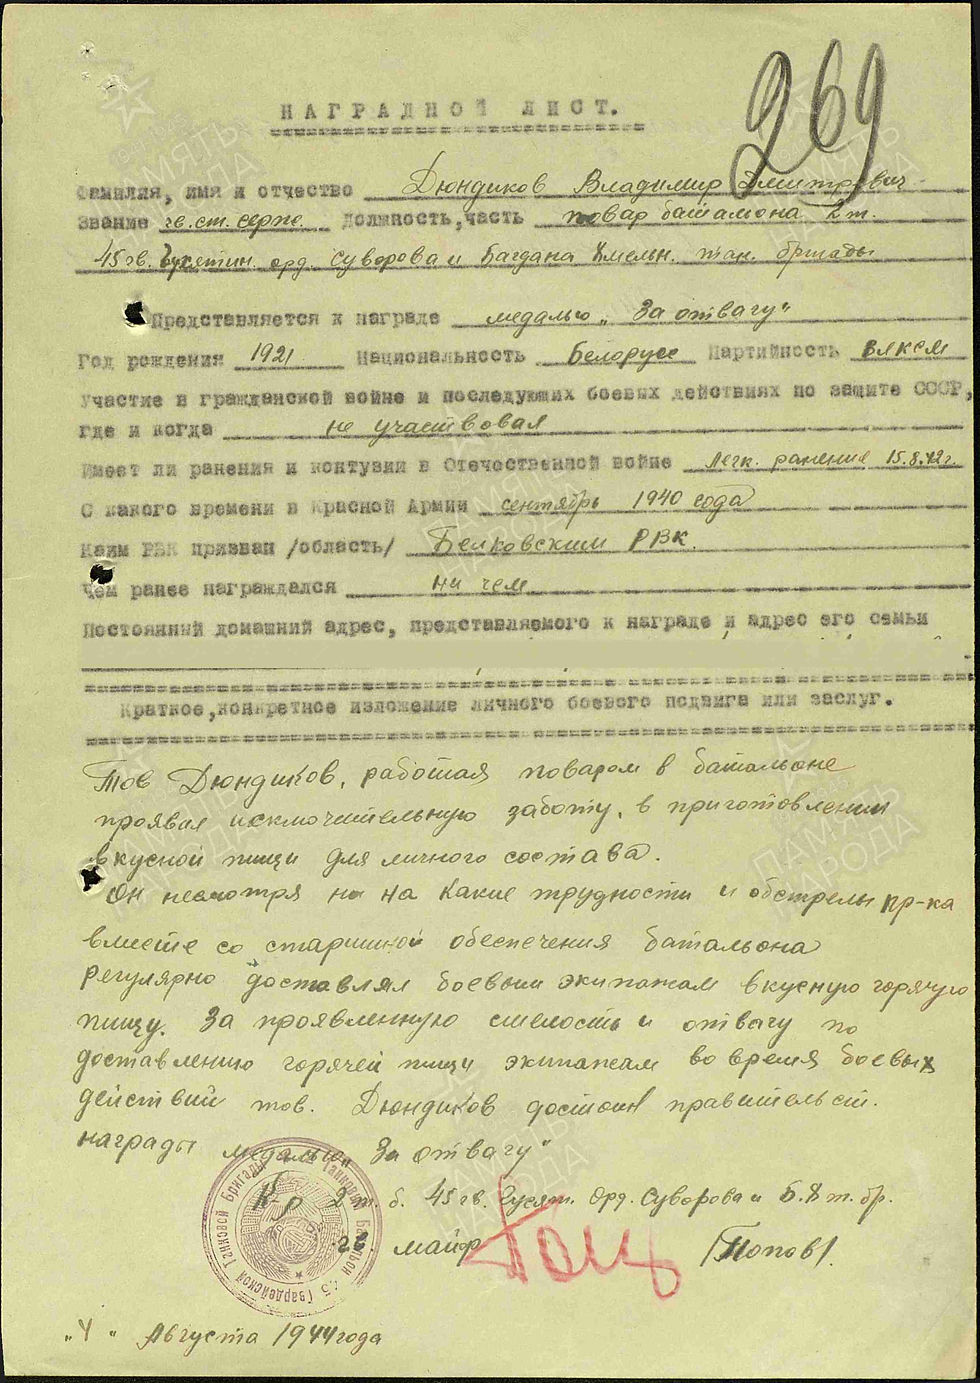 269
НАГРАДНОЙ ЛИСТ.
Фамилия, имя и отчество Дюндиков Владимир Дмитревич
Звание гв.ст.серж. Должность, часть повар баталиона 2 т.
45 гв. Гусятин. орд. Суворова и Багдана Хмельн. тан. бригады
Представляется к награде медалью „За отвагу"
Год рождения 1921 Национальность Белорусс Партийность ВЛКСМ
Участие в гражданской войне и последующих боевых действиях по защите СССР,
где и когда не участвовал
Имеет ли ранения и контузии в Отечественной войне Легк. ранение 15.8.42г.
С какого времени в Красной Армии сентябрь 1940 года
Каим РВК призван /область/ Белковским РВК.
Чем ранее награждался ни чем
Постоянный домашний адрес, представляемого к награде и адрес его семьи
Краткое, конкретное изложение личного боевого подвига или заслуг.
Тов Дюндиков, работая поваром в батальоне
проявил исключительную заботу, в приготовлении
вкусной пищи для личного состава.
Он несмотря ни на какие трудности и обстрелы пр-ка
вместе со старшиной обеспечения батальона
регулярно доставлял боевым экипажам вкусную горячую
пищу. За проявленную смелость и отвагу по
доставлению горячей пищи экипажам во время боевых
действий тов. Дюндиков достоин правительст.
награды медалью „За отвагу"
К-р 2 т. б. 45 гв. Гусят. Орд. Суворова и Б.Х т. бр.
гв. майор /Попов/.
„4" Августа 1944 года